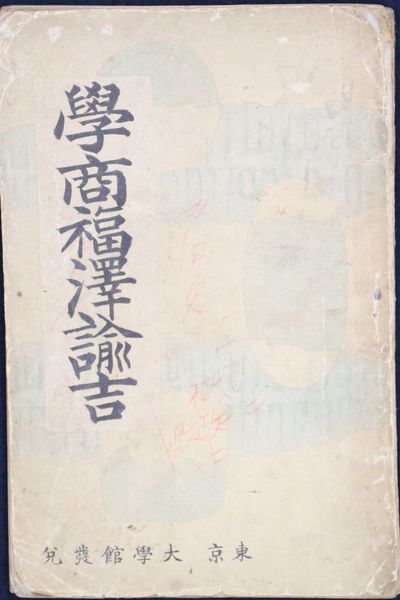 學商福澤諭吉
東京 大學館發兌